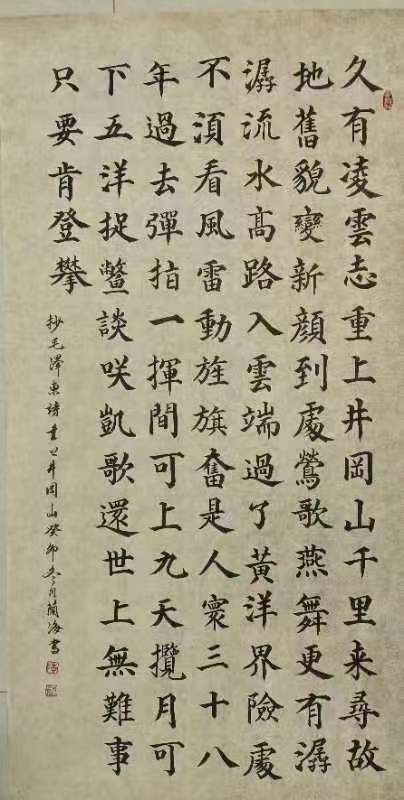 久有凌雲志重上井岡山千里来尋故
地舊貌變新顔到處鶯歌燕舞更有潺
潺流水髙路入雲端過了黃洋界險處
不湏看風雷動旌旗奮是人寰三十八
年過去彈指一揮間可上九天攬月可
下五洋捉鱉談咲凱歌還世上無難事
只要肯登攀
抄毛澤東詩重上井岡山癸卯冬月蘭海書